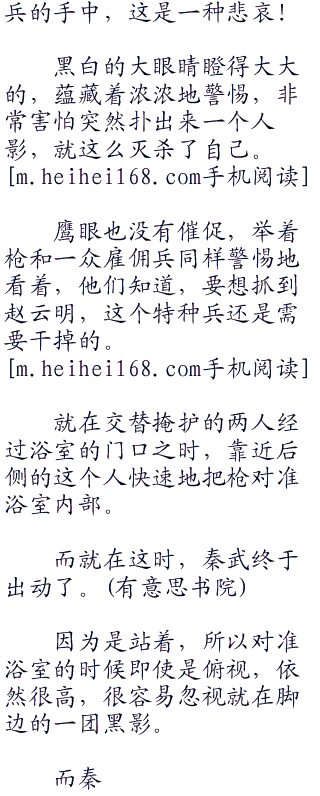 兵的手中，这是一种悲哀！
黑白的大眼睛瞪得大大
的，蕴藏着浓浓地警惕，非
常害怕突然扑出来一个人
影，就这么灭杀了自己。
[m.heihei168.com手机阅读]
鹰眼也没有催促，举着
枪和一众雇佣兵同样警惕地
看着，他们知道，要想抓到
赵云明，这个特种兵还是需
要干掉的。
[m.heihei168.com手机阅读]
就在交替掩护的两人经
过浴室的门口之时，靠近后
侧的这个人快速地把枪对准
浴室内部。
而就在这时，秦武终于
出动了。(有意思书院)
因为是站着，所以对准
浴室的时候即使是俯视，依
然很高，很容易忽视就在脚
边的一团黑影。
而秦